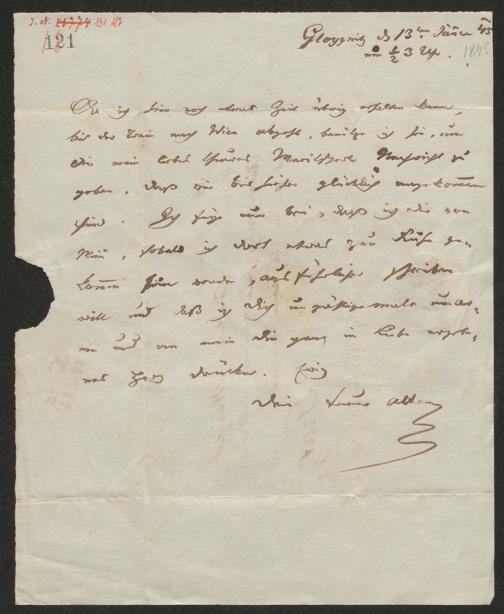 I. N. 131 117
121
Gloggnitz d 13ten Jäner 45
um ½ 3 Uhr.
1845
Da ich hier noch etwas Zeit übrig
bis der Train nach Wien abgeht, benütze ich sie, um
Dir mein liebes theures Nachricht zu
geben, daß wir bis hieher glücklich angekommen
sind. Ich füge nur bei, daß ich Dir von
Wien, sobald ich dort etwas zur Ruhe ge-
kommen sein werde, ausführlicher schreiben
will und daß ich Dich unzähligemale umar-
me und an mein Dir ganz in Liebe ergebe-
nes Herz drücke. Ewig
Dein treuer